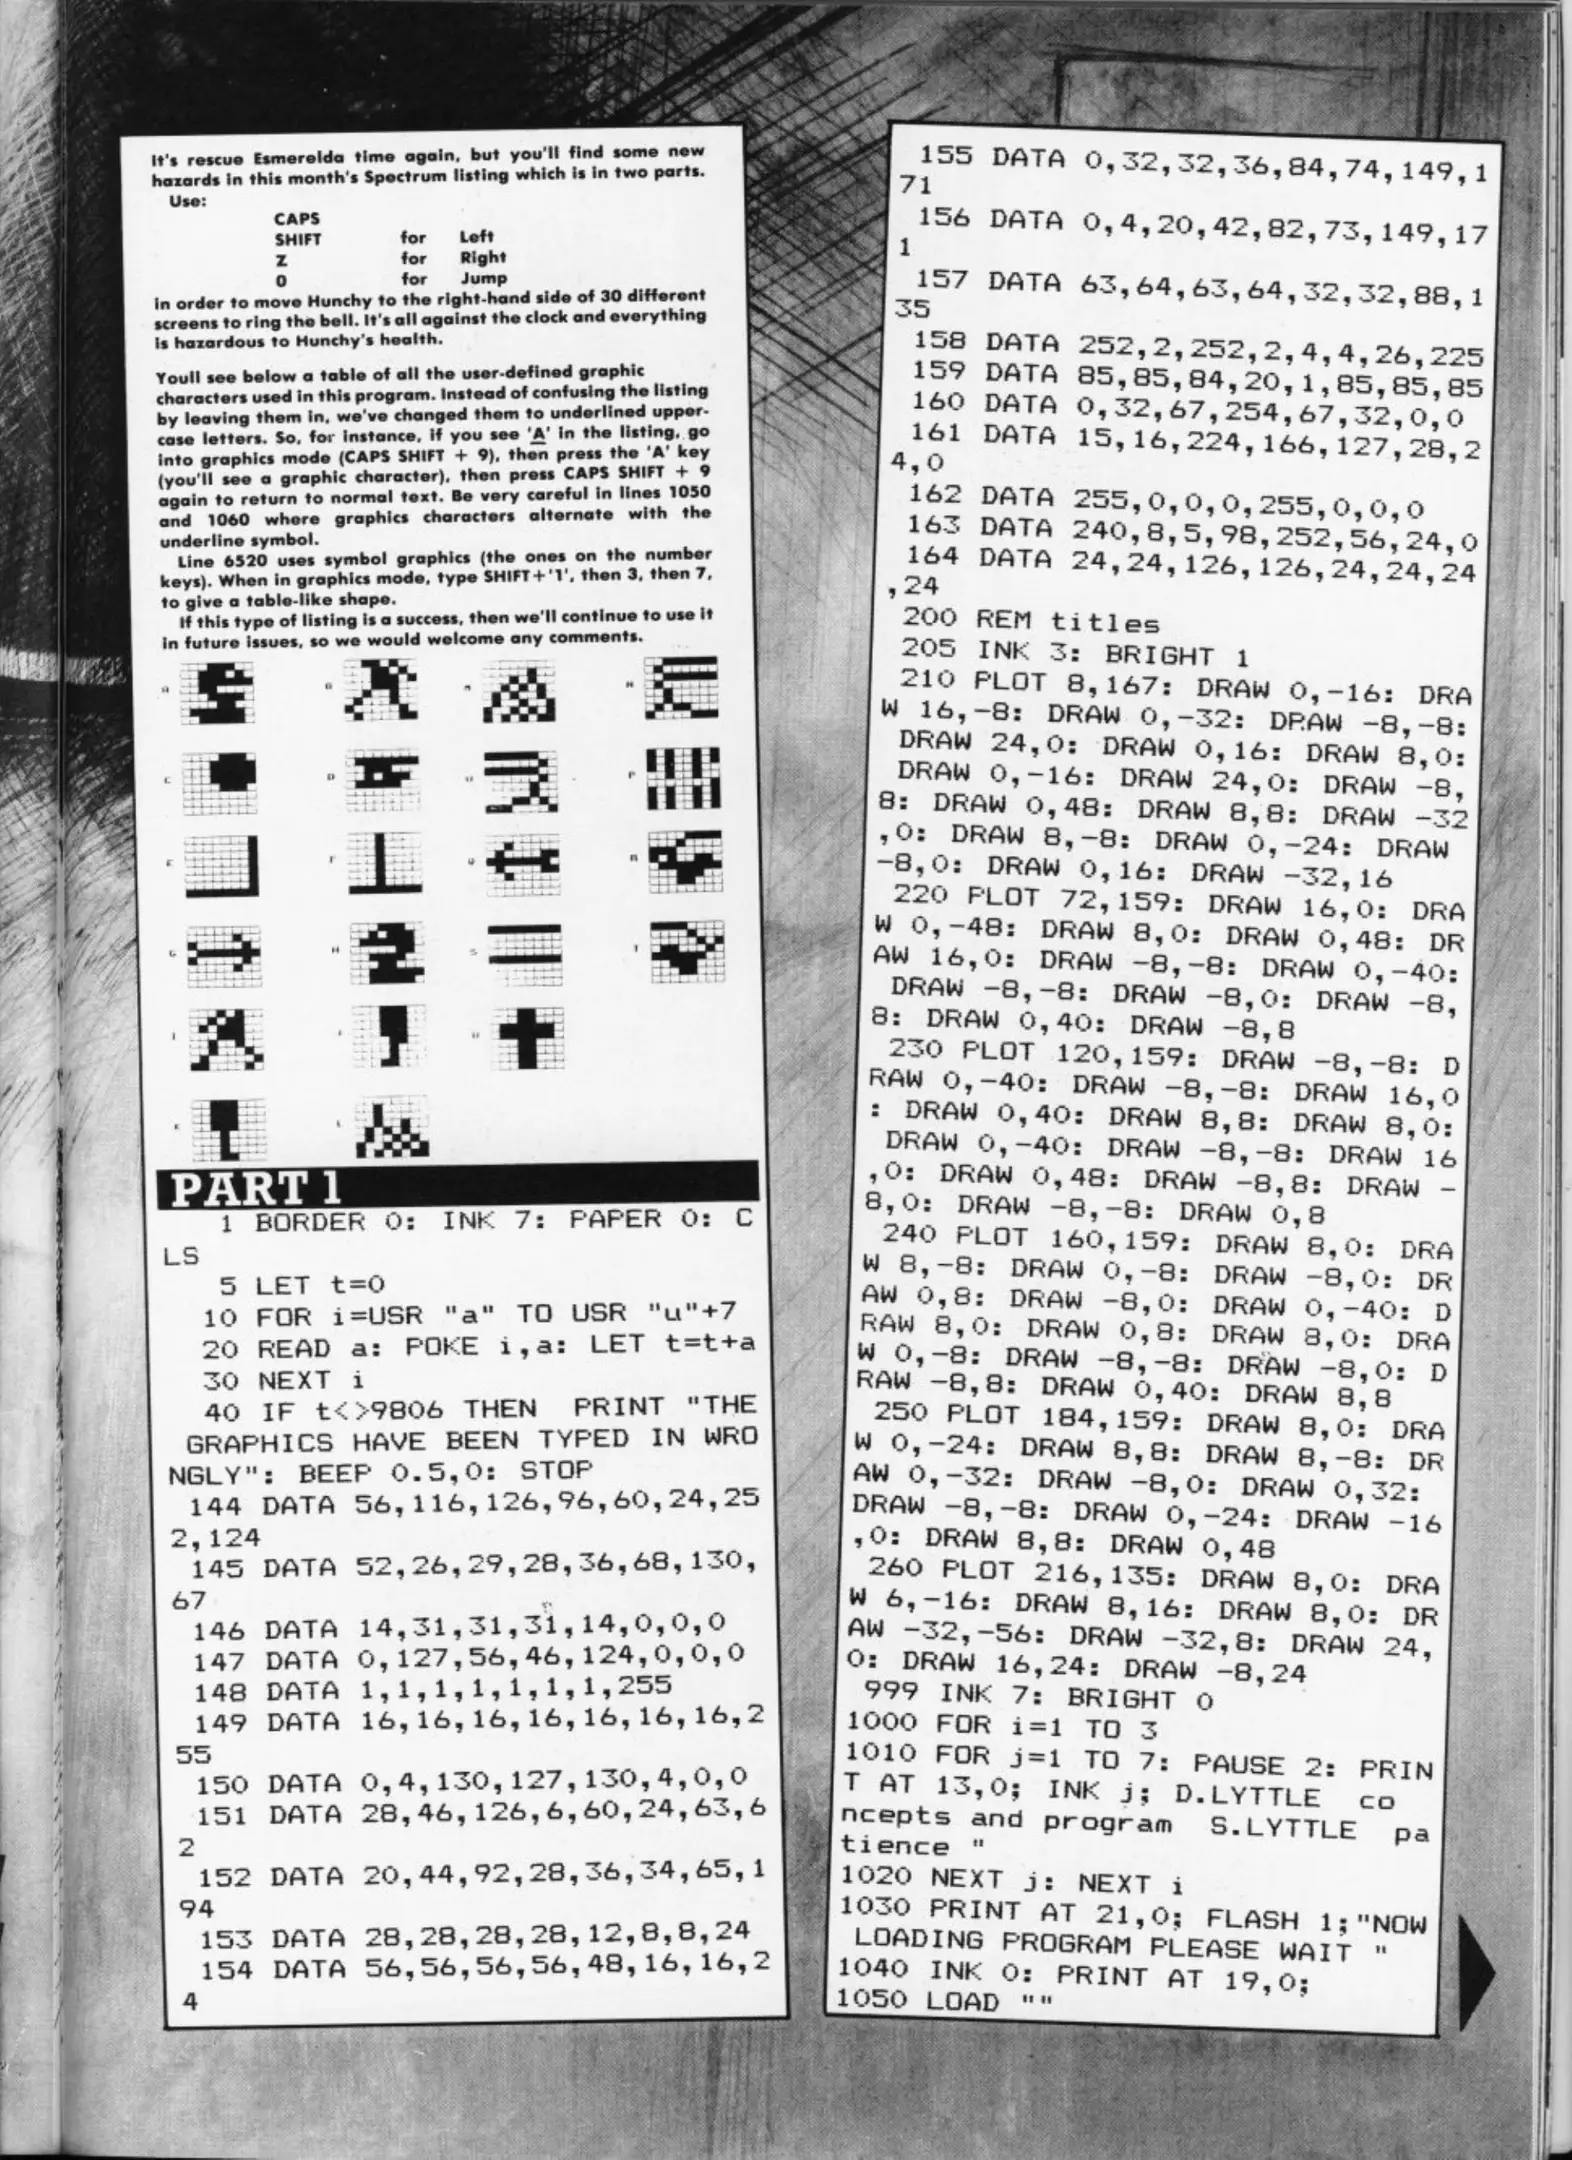 It's rescue Esmerelda time again, but you'll find some new
hazards in this month's Spectrum listing which is in two parts.
Use:
CAPS
SHIFT for Left
Z for Right
0 for Jump
in order to move Hunchy to the right-hand side of 30 different
screens to ring the bell. It's all against the clock and everything
is hazardous to Hunchy's health.
Youll see below a table of all the user-defined graphic
characters used in this program. Instead of confusing the listing
by leaving them in, we've changed them to underlined upper-
case letters. So, for instance, if you see 'A' in the listing, go
into graphics mode (CAPS SHIFT + 9), then press the 'A' key
(you'll see a graphic character), then press CAPS SHIFT + 9
again to return to normal text. Be very careful in lines 1050
and 1060 where graphics characters alternate with the
underline symbol.
Line 6520 uses symbol graphics (the ones on the number
keys). When in graphics mode, type SHIFT+'1', then 3, then 7,
to give a table-like shape.
If this type of listing is a success, then we'll continue to use it
in future issues, so we would welcome any comments.
PART 1
1 BORDER 0: INK 7: PAPER 0: C
LS
5 LET t=0
10 FOR i=USR "a" TO USR "u"+7
20 READ a: POKE i,a: LET t=t+a
30 NEXT i
40 IF t<>9806 THEN PRINT "THE
GRAPHICS HAVE BEEN TYPED IN WRO
NGLY": BEEP 0.5,0: STOP
144 DATA 56,116,126,96,60,24,25
2,124
145 DATA 52,26,29,28,36,68,130,
67
146 DATA 14,31,31,31,14,0,0,0
147 DATA 0,127,56,46,124,0,0,0
148 DATA 1,1,1,1,1,1,1,255
149 DATA 16,16,16,16,16,16,16,2
55
150 DATA 0,4,130,127,130,4,0,0
151 DATA 28,46,126,6,60,24,63,6
2
152 DATA 20,44,92,28,36,34,65,1
94
153 DATA 28,28,28,28,12,8,8,24
154 DATA 56,56,56,56,48,16,16,2
4
155 DATA 0,32,32,36,84,74,149,1
71
156 DATA 0,4,20,42,82,73,149,17
1
157 DATA 63,64,63,64,32,32,88,1
35
158 DATA 252,2,252,2,4,4,26,225
159 DATA 85,85,84,20,1,85,85,85
160 DATA 0,32,67,254,67,32,0,0
161 DATA 15,16,224,166,127,28,2
4,0
162 DATA 255,0,0,0,255,0,0,0
163 DATA 240,8,5,98,252,56,24,0
164 DATA 24,24,126,126,24,24,24
,24
200 REM titles
205 INK 3: BRIGHT 1
210 PLOT 8,167: DRAW 0,-16: DRA
W 16,-8: DRAW 0,-32: DRAW -8,-8:
DRAW 24,0: DRAW 0,16: DRAW 8,0:
DRAW 0,-16: DRAW 24,0: DRAW -8,
8: DRAW 0,48: DRAW 8,8: DRAW -32
,0: DRAW 8,-8: DRAW 0,-24: DRAW
-8,0: DRAW 0,16: DRAW -32,16
220 PLOT 72,159: DRAW 16,0: DRA
W 0,-48: DRAW 8,0: DRAW 0,48: DR
AW 16,0: DRAW -8,-8: DRAW 0,-40:
DRAW -8,-8: DRAW -8,0: DRAW -8,
8: DRAW 0,40: DRAW -8,8
230 PLOT 120,159: DRAW -8,-8: D
RAW 0,-40: DRAW -8,-8: DRAW 16,0
: DRAW 0,40: DRAW 8,8: DRAW 8,0:
DRAW 0,-40: DRAW -8,-8: DRAW 16
,0: DRAW 0,48: DRAW -8,8: DRAW -
8,0: DRAW -8,-8: DRAW 0,8
240 PLOT 160,159: DRAW 8,0: DRA
W 8,-8: DRAW 0,-8: DRAW -8,0: DR
AW 0,8: DRAW -8,0: DRAW 0,-40: D
RAW 8,0: DRAW 0,8: DRAW 8,0: DRA
W 0,-8: DRAW -8,-8: DRAW -8,0: D
RAW -8,8: DRAW 0,40: DRAW 8,8
250 PLOT 184,159: DRAW 8,0: DRA
W 0,-24: DRAW 8,8: DRAW 8,-8: DR
AW 0,-32: DRAW -8,0: DRAW 0,32:
DRAW -8,-8: DRAW 0,-24: DRAW -16
,0: DRAW 8,8: DRAW 0,48
260 PLOT 216,135: DRAW 8,0: DRA
W 6,-16: DRAW 8,16: DRAW 8,0: DR
AW -32,-56: DRAW -32,8: DRAW 24,
0: DRAW 16,24: DRAW -8,24
999 INK 7: BRIGHT 0
1000 FOR i=1 TO 3
1010 FOR j=1 TO 7: PAUSE 2: PRIN
T AT 13,0; INK j; D.LYTTLE co
ncepts and program S.LYTTLE pa
tience "
1020 NEXT j: NEXT i
1030 PRINT AT 21,0; FLASH 1;"NOW
LOADING PROGRAM PLEASE WAIT "
1040 INK 0: PRINT AT 19,0;
1050 LOAD ""